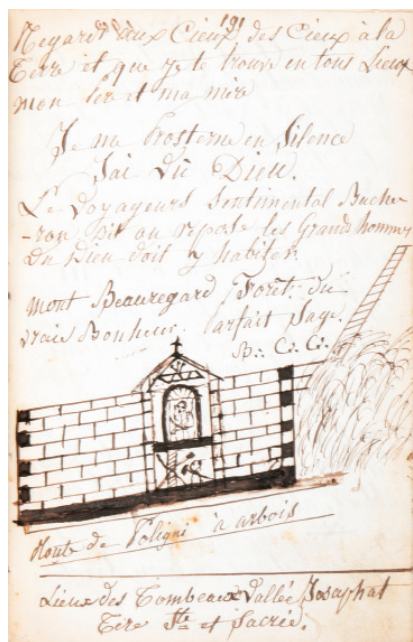 191
Regardé aux Cieux des Cieux à la
Terre et que je te trouve en tous Lieux
mon et ma
Je me Prosterne en Silence
Jai Dit Dieu.
Le Voyageurs Sentimental Buche-
-ron Dit ou repose les Grands hommes
Un Dieu doit y habiter.
Mont Beauregard Forêt du
vraie Bonheur. Parfait Sage.
B∴ C∴ C∴
Route de Poligni à arbois
Lieux des Tombeaux Vallée Josaphat
Tere Ste et Sacrée.